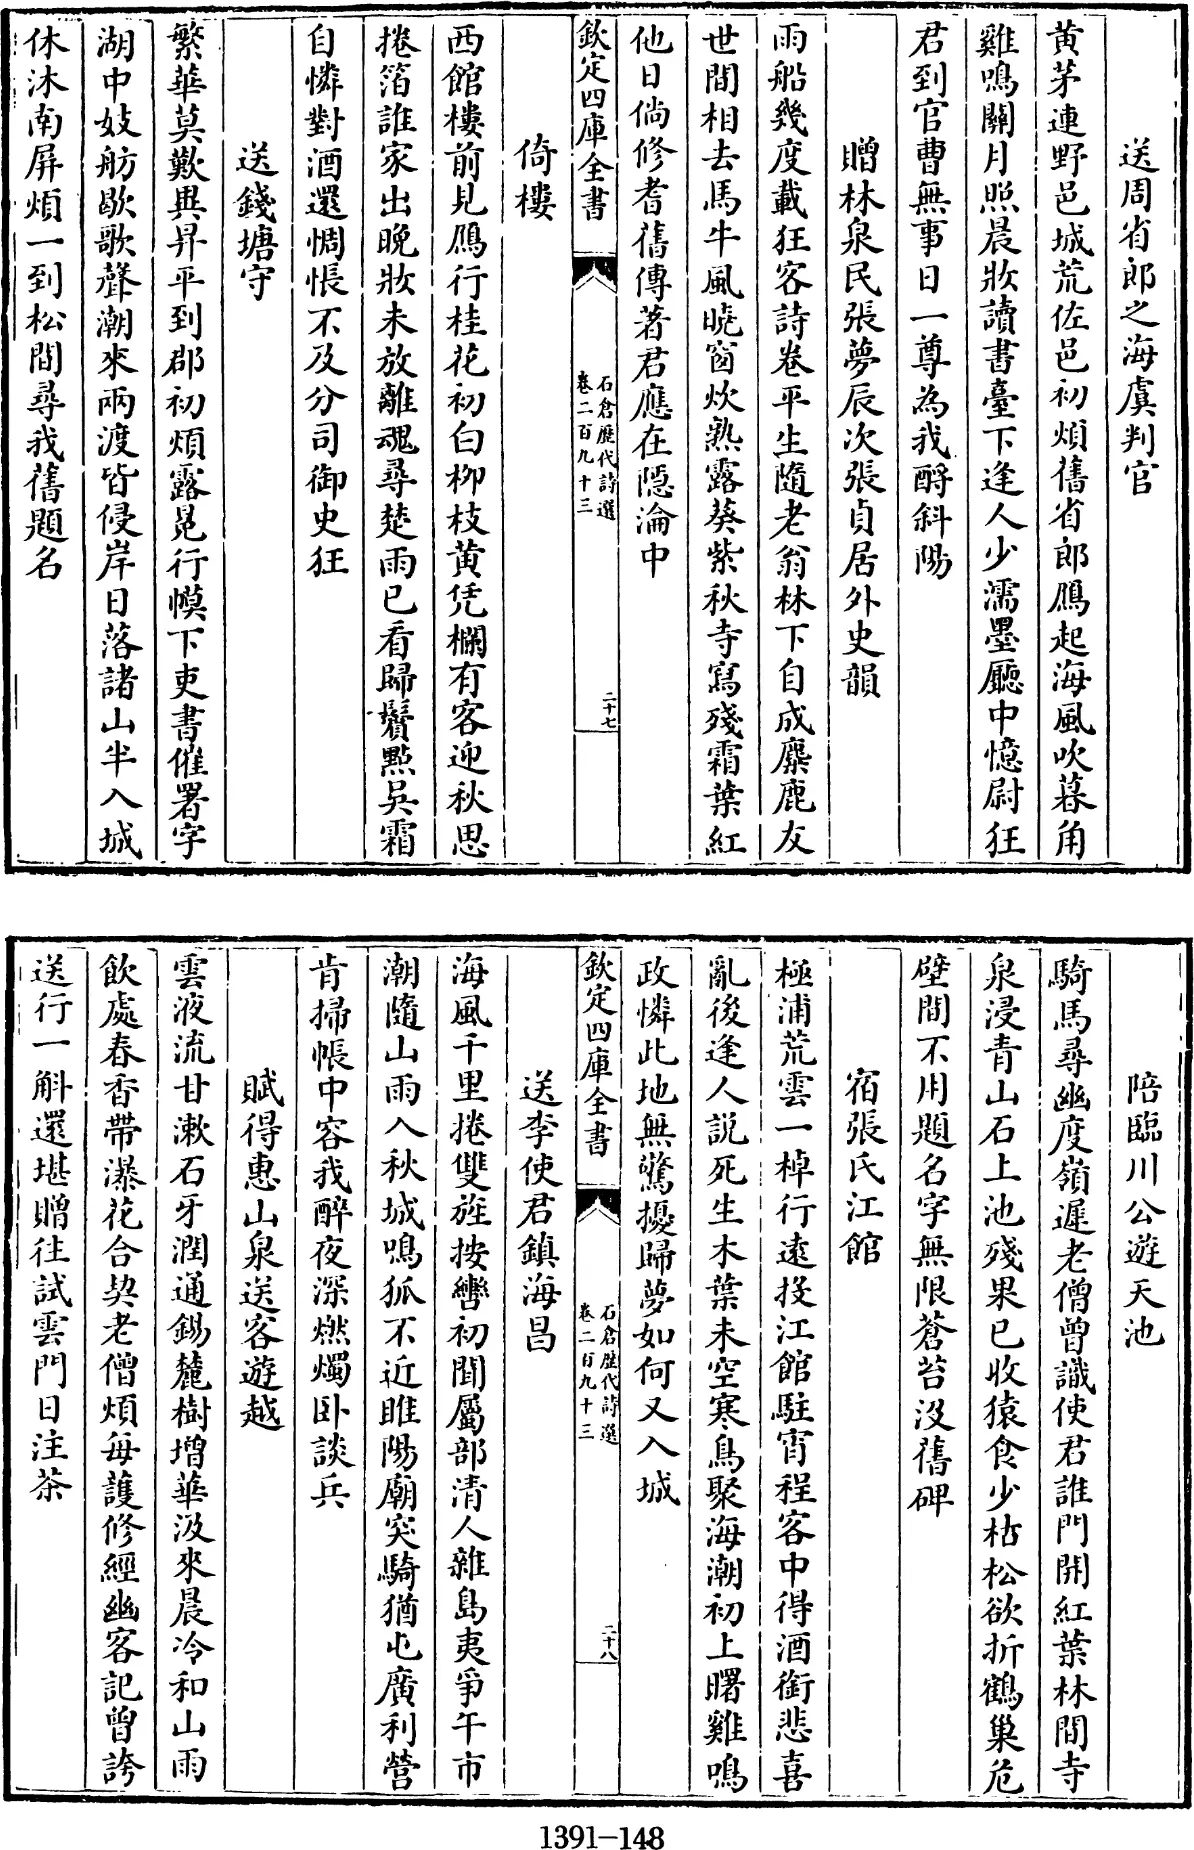 送周省郎之海虞判官
黄茅連野邑城荒佐邑初煩舊省郎鴈起海風吹暮角
雞鳴關月照晨妝讀書臺下逢人少濡墨廳中憶尉狂
君到官曹無事日一尊為我酹斜陽
贈林泉民張夢辰次張貞居外史韻
雨船幾度載狂客詩卷平生隨老翁林下自成麋鹿友
世間相去馬牛風曉窗炊熟露葵紫秋寺寫殘霜葉紅
他日倘修耆舊傳著君應在隠淪中
欽定四庫全書
石倉歷代詩選
卷二百九十三
二十七
倚樓
西館樓前見鴈行桂花初白柳枝黄凭欄有客迎秋思
捲箔誰家出晚妝未放離魂尋楚雨已看歸鬢點吳霜
自憐對酒還惆悵不及分司御史狂
送錢塘守
繁華莫歎異昇平到郡初煩露冕行幙下吏書催署字
湖中妓舫歇歌聲潮來兩渡皆侵岸日落諸山半入城
休沐南屏煩一到松間尋我舊題名
陪臨川公遊天池
騎馬尋幽度嶺遲老僧曾識使君誰門開紅葉林間寺
泉浸青山石上池殘果已收猿食少枯松欲折鶴巢危
壁間不用題名字無限蒼苔沒舊碑
宿張氏江館
極浦荒雲一棹行遠投江館駐宵程客中得酒銜悲喜
亂後逢人説死生木葉未空寒鳥聚海潮初上曙雞鳴
政憐此地無驚擾歸夢如何又入城
欽定四庫全書
石倉歷代詩選
卷二百九十三
二十八
送李使君鎮海昌
海風千里捲雙旌按轡初聞屬部清人雜島夷爭午市
潮隨山雨入秋城鳴狐不近睢陽廟突騎猶屯廣利營
肯掃帳中容我醉夜深燃燭卧談兵
賦得惠山泉送客遊越
雲液流甘漱石牙潤通錫麓樹增華汲來晨冷和山雨
飲處春香帶瀑花合契老僧煩每護修經幽客記曾誇
送行一斛還堪贈往試雲門日注茶
1391-148